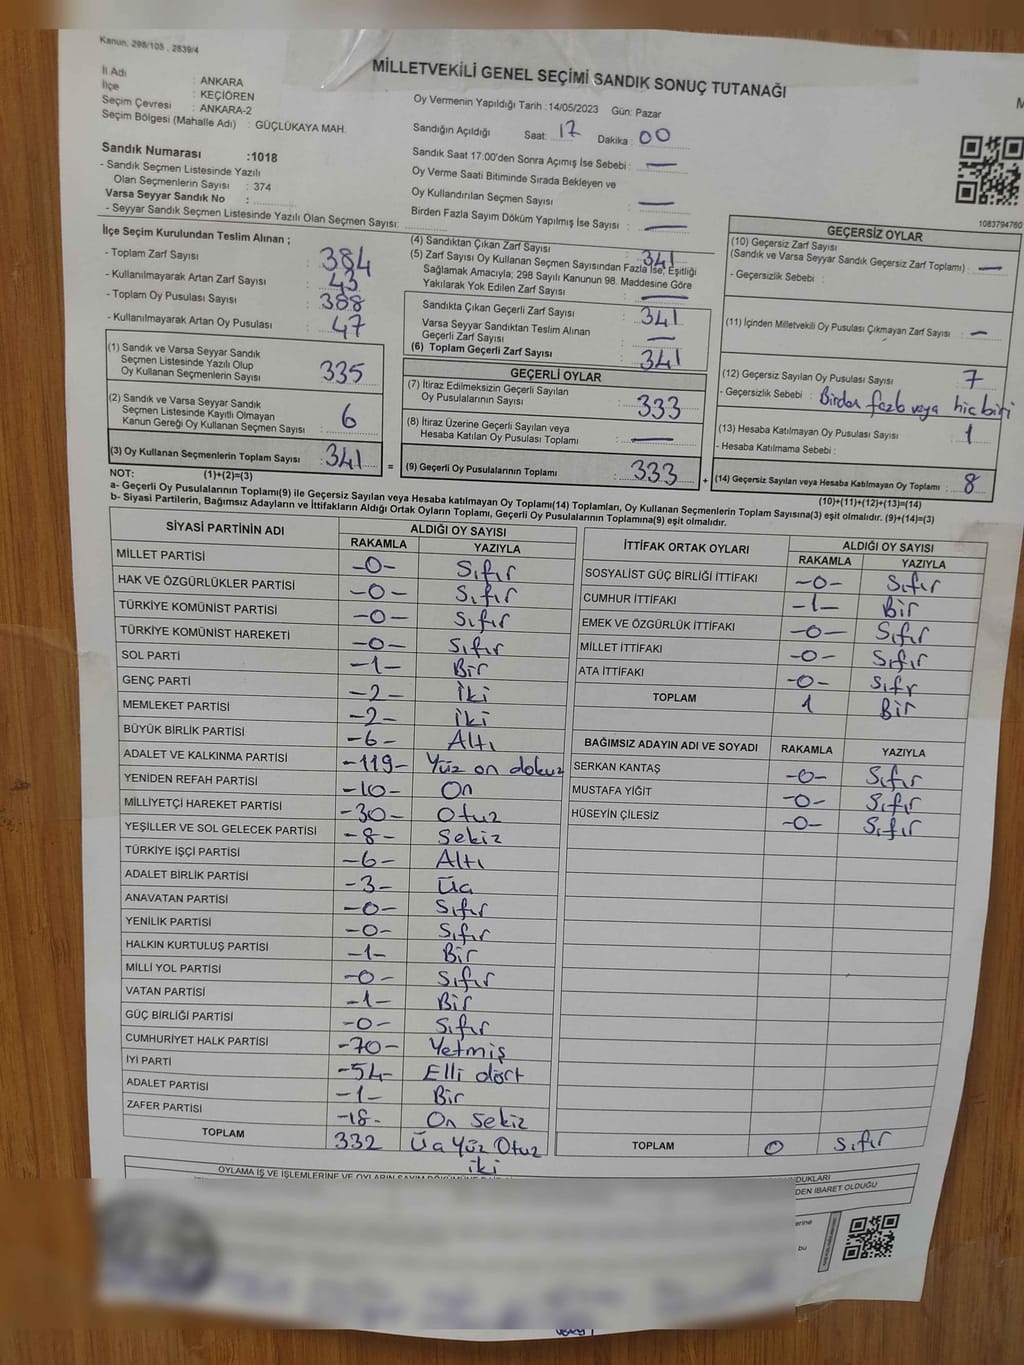 Kanun, 298/105 , 2839/4
MİLLETVEKİLİ GENEL SEÇİMİ SANDIK SONUÇ TUTANAĞI
İl Adı : ANKARA
İlçe : KEÇİÖREN
Seçim Çevresi : ANKARA-2
Seçim Bölgesi (Mahalle Adı) : GÜÇLÜKAYA MAH.
Sandık Numarası :1018
- Sandık Seçmen Listesinde Yazılı
Olan Seçmenlerin Sayısı : 374
Varsa Seyyar Sandık No :
- Seyyar Sandık Seçmen Listesinde Yazılı Olan Seçmen Sayısı:
Oy Vermenin Yapıldığı Tarih :14/05/2023 Gün: Pazar
Sandığın Açıldığı Saat: 17 Dakika : 00
Sandık Saat 17:00'den Sonra Açımış İse Sebebi : —
Oy Verme Saati Bitiminde Sırada Bekleyen ve
Oy Kullandırılan Seçmen Sayısı : —
Birden Fazla Sayım Döküm Yapılmış İse Sayısı : —
1083794760
İlçe Seçim Kurulundan Teslim Alınan ;
- Toplam Zarf Sayısı : 384
- Kullanılmayarak Artan Zarf Sayısı : 43
- Toplam Oy Pusulası Sayısı : 388
- Kullanılmayarak Artan Oy Pusulası : 47
(1) Sandık ve Varsa Seyyar Sandık
Seçmen Listesinde Yazılı Olup
Oy Kullanan Seçmenlerin Sayısı : 335
(2) Sandık ve Varsa Seyyar Sandık
Seçmen Listesinde Kayıtlı Olmayan
Kanun Gereği Oy Kullanan Seçmen Sayısı : 6
(3) Oy Kullanan Seçmenlerin Toplam Sayısı : 341
(4) Sandıktan Çıkan Zarf Sayısı : 341
(5) Zarf Sayısı Oy Kullanan Seçmen Sayısından Fazla İse, Eşitliği
Sağlamak Amacıyla; 298 Sayılı Kanunun 98. Maddesine Göre
Yakılarak Yok Edilen Zarf Sayısı : —
Sandıkta Çıkan Geçerli Zarf Sayısı : 341
Varsa Seyyar Sandıktan Teslim Alınan
Geçerli Zarf Sayısı : —
(6) Toplam Geçerli Zarf Sayısı : 341
GEÇERLİ OYLAR
(7) İtiraz Edilmeksizin Geçerli Sayılan
Oy Pusulalarının Sayısı : 333
(8) İtiraz Üzerine Geçerli Sayılan veya
Hesaba Katılan Oy Pusulası Toplamı : —
= (9) Geçerli Oy Pusulalarının Toplamı : 333
GEÇERSİZ OYLAR
(10) Geçersiz Zarf Sayısı
(Sandık ve Varsa Seyyar Sandık Geçersiz Zarf Toplamı) : —
- Geçersizlik Sebebi :
(11) İçinden Milletvekili Oy Pusulası Çıkmayan Zarf Sayısı : —
(12) Geçersiz Sayılan Oy Pusulası Sayısı : 7
- Geçersizlik Sebebi : Birden fazla veya hiç biri
(13) Hesaba Katılmayan Oy Pusulası Sayısı : 1
- Hesaba Katılmama Sebebi :
+ (14) Geçersiz Sayılan veya Hesaba Katılmayan Oy Toplamı : 8
NOT: (1)+(2)=(3)
(10)+(11)+(12)+(13)=(14)
a- Geçerli Oy Pusulalarının Toplamı(9) ile Geçersiz Sayılan veya Hesaba katılmayan Oy Toplamı(14) Toplamları, Oy Kullanan Seçmenlerin Toplam Sayısına(3) eşit olmalıdır. (9)+(14)=(3)
b- Siyasi Partilerin, Bağımsız Adayların ve İttifakların Aldığı Ortak Oyların Toplamı, Geçerli Oy Pusulalarının Toplamına(9) eşit olmalıdır.
SİYASİ PARTİNİN ADI ALDIĞI OY SAYISI
RAKAMLA YAZIYLA
MİLLET PARTİSİ -0- Sıfır
HAK VE ÖZGÜRLÜKLER PARTİSİ -0- Sıfır
TÜRKİYE KOMÜNİST PARTİSİ -0- Sıfır
TÜRKİYE KOMÜNİST HAREKETİ -0- Sıfır
SOL PARTİ -1- Bir
GENÇ PARTİ -2- İki
MEMLEKET PARTİSİ -2- İki
BÜYÜK BİRLİK PARTİSİ -6- Altı
ADALET VE KALKINMA PARTİSİ -119- Yüz on dokuz
YENİDEN REFAH PARTİSİ -10- On
MİLLİYETÇİ HAREKET PARTİSİ -30- Otuz
YEŞİLLER VE SOL GELECEK PARTİSİ -8- Sekiz
TÜRKİYE İŞÇİ PARTİSİ -6- Altı
ADALET BİRLİK PARTİSİ -3- Üç
ANAVATAN PARTİSİ -0- Sıfır
YENİLİK PARTİSİ -0- Sıfır
HALKIN KURTULUŞ PARTİSİ -1- Bir
MİLLİ YOL PARTİSİ -0- Sıfır
VATAN PARTİSİ -1- Bir
GÜÇ BİRLİĞİ PARTİSİ -0- Sıfır
CUMHURİYET HALK PARTİSİ -70- Yetmiş
İYİ PARTİ -54- Elli dört
ADALET PARTİSİ -1- Bir
ZAFER PARTİSİ -18- On Sekiz
TOPLAM 332 Üç Yüz Otuz
iki
İTTİFAK ORTAK OYLARI ALDIĞI OY SAYISI
RAKAMLA YAZIYLA
SOSYALİST GÜÇ BİRLİĞİ İTTİFAKI -0- Sıfır
CUMHUR İTTİFAKI -1- Bir
EMEK VE ÖZGÜRLÜK İTTİFAKI -0- Sıfır
MİLLET İTTİFAKI -0- Sıfır
ATA İTTİFAKI -0- Sıfr
TOPLAM 1 Bir
BAĞIMSIZ ADAYIN ADI VE SOYADI RAKAMLA YAZIYLA
SERKAN KANTAŞ -0- Sıfır
MUSTAFA YİĞİT -0- Sıfır
HÜSEYİN ÇİLESİZ -0- Sıfır
TOPLAM 0 Sıfır
DEN İBARET OLDUĞU
bu